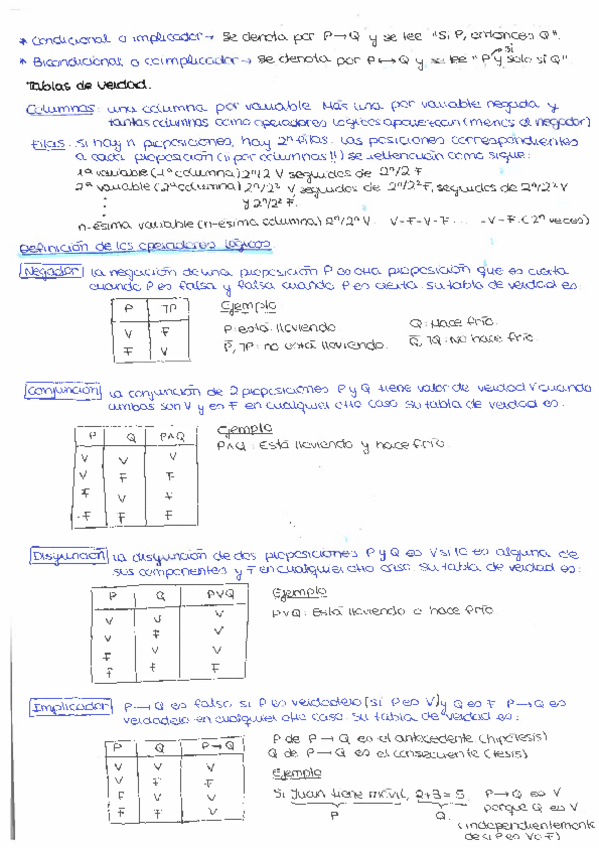 * Condicional o implicador → Se denota por P→Q y se lee "Si P, entonces Q".
* Bicondicional o coimplicador → Se denota por P↔Q y se lee "P si y solo si Q"
Tablas de verdad.
Columnas: una columna por variable. Más una por variable negada y
tantas columnas como operadores lógicos aparezcan (menos el negador)
Filas: si hay n proposiciones, hay 2ⁿ filas. Las posiciones correspondientes
a cada proposición (¡¡por columnas!!) se rellenarán como sigue:
1ª variable (1ª columna) 2ⁿ/2 V seguidos de 2ⁿ/2 F
2ª variable (2ª columna) 2ⁿ/2² V seguidos de 2ⁿ/2² F, seguidos de 2ⁿ/2² V
y 2ⁿ/2² F.
n-ésima variable (n-ésima columna) 2ⁿ/2ⁿ V. V-F-V-F... -V-F. (2ⁿ veces)
Definición de los operadores lógicos
Negador La negación de una proposición P es otra proposición que es cierta
cuando P es falsa y falsa cuando P es cierta. Su tabla de verdad es:
P ¬P
V F
F V
Ejemplo
P: está lloviendo. Q: Hace frío.
P̅, ¬P: no está lloviendo. Q̅, ¬Q: No hace frío.
Conjunción La conjunción de 2 proposiciones P y Q tiene valor de verdad V cuando
ambas son V y es F en cualquier otro caso. Su tabla de verdad es:
P Q P∧Q
V V V
V F F
F V F
F F F
Ejemplo
P∧Q: Está lloviendo y hace frío.
Disyunción La disyunción de dos proposiciones P y Q es V si lo es alguna de
sus componentes y F en cualquier otro caso. Su tabla de verdad es:
P Q P∨Q
V V V
V F V
F V V
F F F
Ejemplo
P∨Q: Está lloviendo o hace frío
Implicador P→Q es falsa si P es verdadero [si P es V] y Q es F. P→Q es
verdadero en cualquier otro caso. Su tabla de verdad es:
P Q P→Q
V V V
V F F
F V V
F F V
P de P→Q es el antecedente (hipótesis)
Q de P→Q es el consecuente (tesis)
Ejemplo
Si Juan tiene móvil, 2+3=5. P→Q es V
P Q porque Q es V
(independientemente
de si P es V o F)